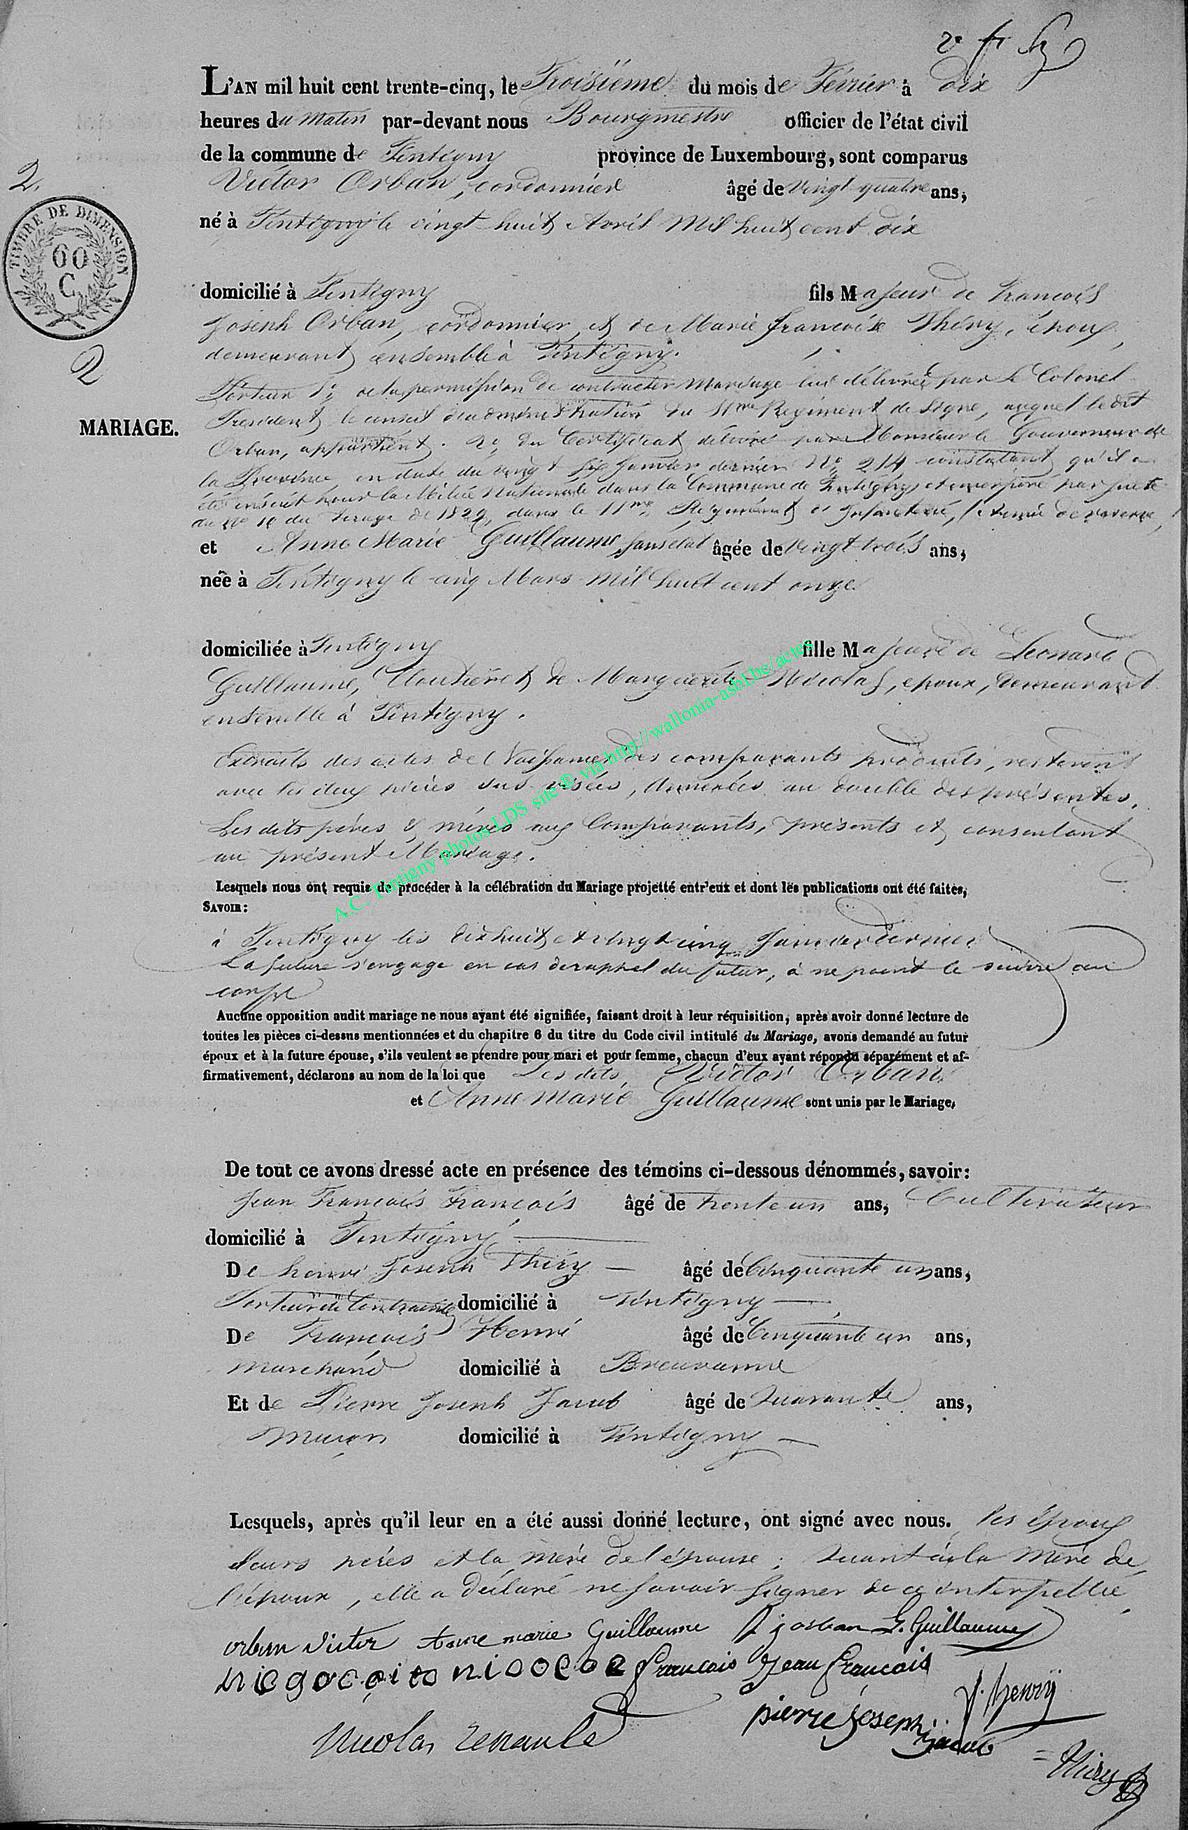 L'AN mil huit cent trente-cinq, le Troisième du mois de Février à dix
heures du matin par-devant nous Bourgmestre officier de l'état civil
de la commune de Tintigny province de Luxembourg, sont comparus
2.
Victor Orban, cordonnier âgé de vingt quatre ans,
TIMBRE DE DIMENSION
60
C.
né à Tintigny le vingt huit Avril Mil huit cent dix
domicilié à Tintigny fils Majeur de François
Joseph Orban, cordonnier, et de Marie françoise Thiry, époux,
demeurant ensemble à Tintigny.
2
Porteur 1º de la permission de contracter mariage lui délivrée par le Colonel
MARIAGE.
Président le conseil d'administration du 11me Régiment de ligne, auquel le dit
Orban, appartient. 2º du Certificat délivré par Monsieur le Gouverneur de
la Province, en date du vingt six Janvier dernier Nº 214 constatant qu'il a
été inscrit pour la Milice Nationale dans la Commune de Tintigny et incorporé par suite
du Nº 10 du tirage de 1829, dans le 11me Régiment d'Infanterie, Armée de réserve,
et Anne Marie Guillaume, sans état âgée de vingt trois ans,
née à Tintigny le cinq Mars mil huit cent onze
domiciliée à Tintigny fille Majeure de Léonard
Guillaume, Cloutier et de Marguerite Nicolas, époux, demeurant
ensemble à Tintigny.
Extraits des actes de Naissances des comparants produits, resteront
avec les deux pièces sus visées, Annexées au double des présentes.
Les dits pères & mères aux Comparants, présents et consentant
au présent Mariage.
Lesquels nous ont requis de procéder à la célébration du Mariage projetté entr'eux et dont les publications ont été faites,
SAVOIR:
à Tintigny les dix huit et vingt cinq Janvier dernier
La future s'engage en cas de rappel du futur, à ne point le suivre au
corps
Aucune opposition audit mariage ne nous ayant été signifiée, faisant droit à leur réquisition, après avoir donné lecture de
toutes les pièces ci-dessus mentionnées et du chapitre 6 du titre du Code civil intitulé du Mariage, avons demandé au futur
époux et à la future épouse, s'ils veulent se prendre pour mari et pour femme, chacun d'eux ayant répondu séparément et af-
firmativement, déclarons au nom de la loi que Les dits, Victor Orban
et Anne Marie Guillaume sont unis par le Mariage,
De tout ce avons dressé acte en présence des témoins ci-dessous dénommés, savoir:
Jean François François âgé de trente un ans, Cultivateur
domicilié à Tintigny
De henri Joseph Thiry âgé de Cinquante un ans,
domicilié à Tintigny
De François Henri âgé de Cinquante un ans,
marchand domicilié à Breuvanne
Et de Pierre Joseph Jacob âgé de Quarante ans,
maçon domicilié à Tintigny
Lesquels, après qu'il leur en a été aussi donné lecture, ont signé avec nous. les époux
leurs pères et la mère de l'épouse; Quant à la mère de
l'époux, elle a déclaré ne savoir signer de ce interpellée
orban victor Anne marie Guillaume f j orban L. Guillaume
francois Jean francois
f. henry
pierre joseph jacob
Nicolas
Thiry
A.C. Tintigny photos LDS site © via http://wallonia-asbl.be/actes